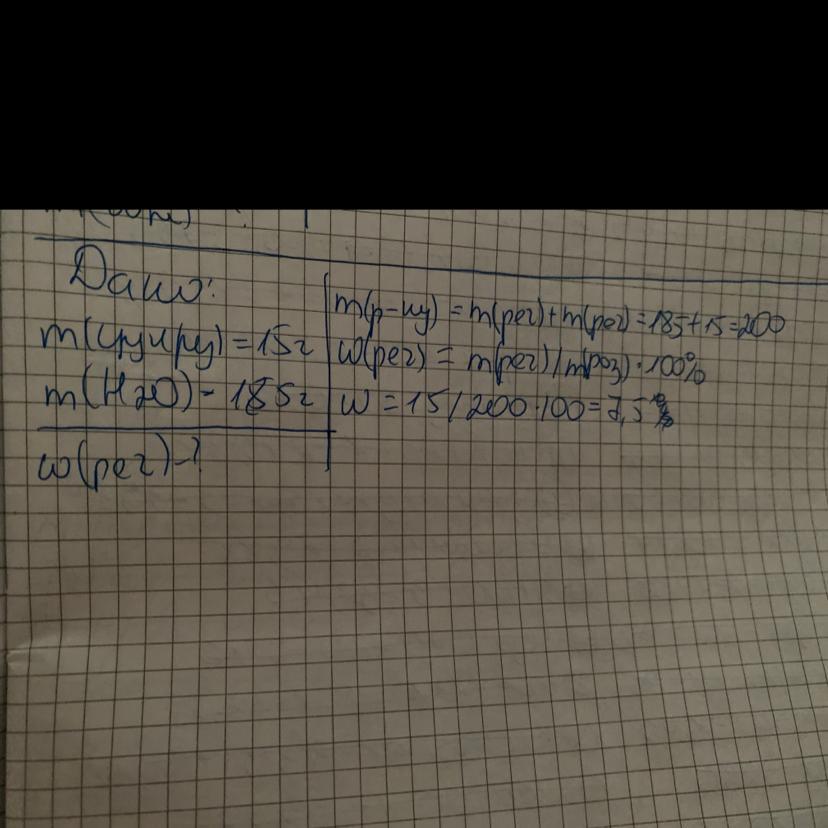 Дано:
m(цукру) = 15г
m(H2O) - 185г
w(реч) - ?
m(р-ну) = m(реч) + m(реч) = 185 + 15 = 200
w(реч) = m(реч) / m(роз) · 100%
w = 15 / 200 · 100 = 7,5%